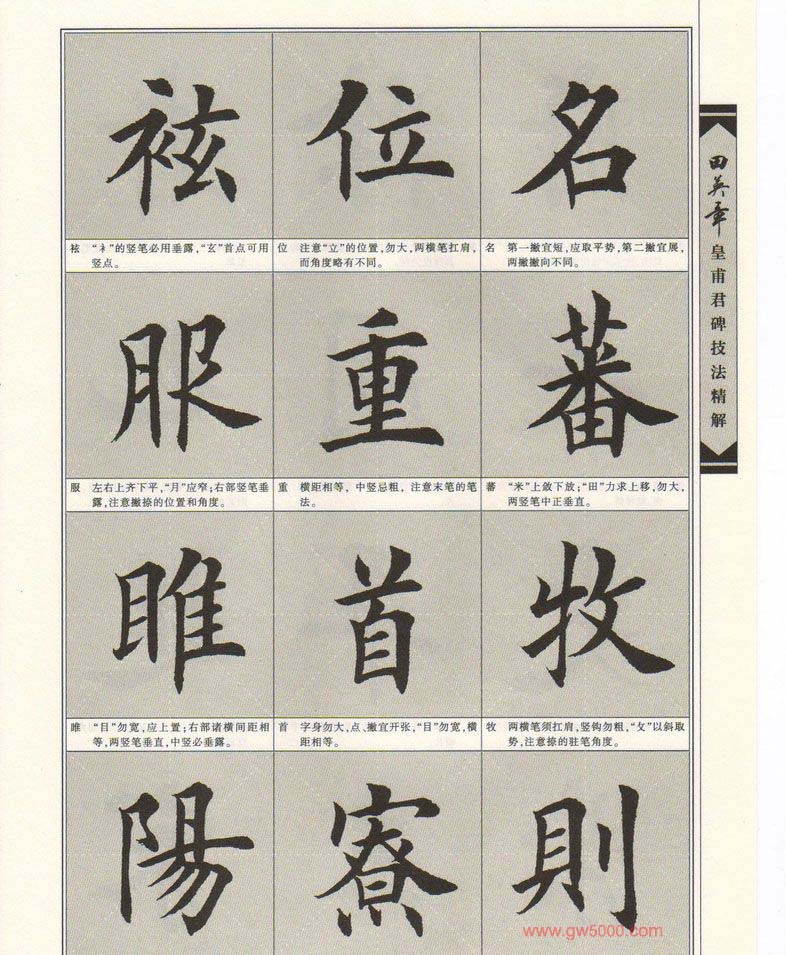 袨 位 名
袨 “衤”的竖笔必用垂露,“玄”首点可用
竖点。
位 注意“立”的位置,勿大,两横笔扛肩,
而角度略有不同。
名 第一撇宜短,应取平势,第二撇宜展,
两撇撇向不同。
服 重 蕃
服 左右上齐下平,“月”应窄;右部竖笔垂
露,注意撇捺的位置和角度。
重 横距相等，中竖忌粗，注意末笔的笔
法。
蕃 “米”上敛下放;“田”力求上移,勿大,
两竖笔中正垂直。
睢 首 牧
睢 “目”勿宽,应上置;右部诸横间距相
等,两竖笔垂直,中竖必垂露。
首 字身勿大,点、撇宜开张,“目”勿宽,横
距相等。
牧 两横笔须扛肩,竖钩勿粗,“攵”以斜取
势,注意捺的驻笔角度。
陽 寮 則
田英章
皇甫君碑技法精解
www.gw5000.com